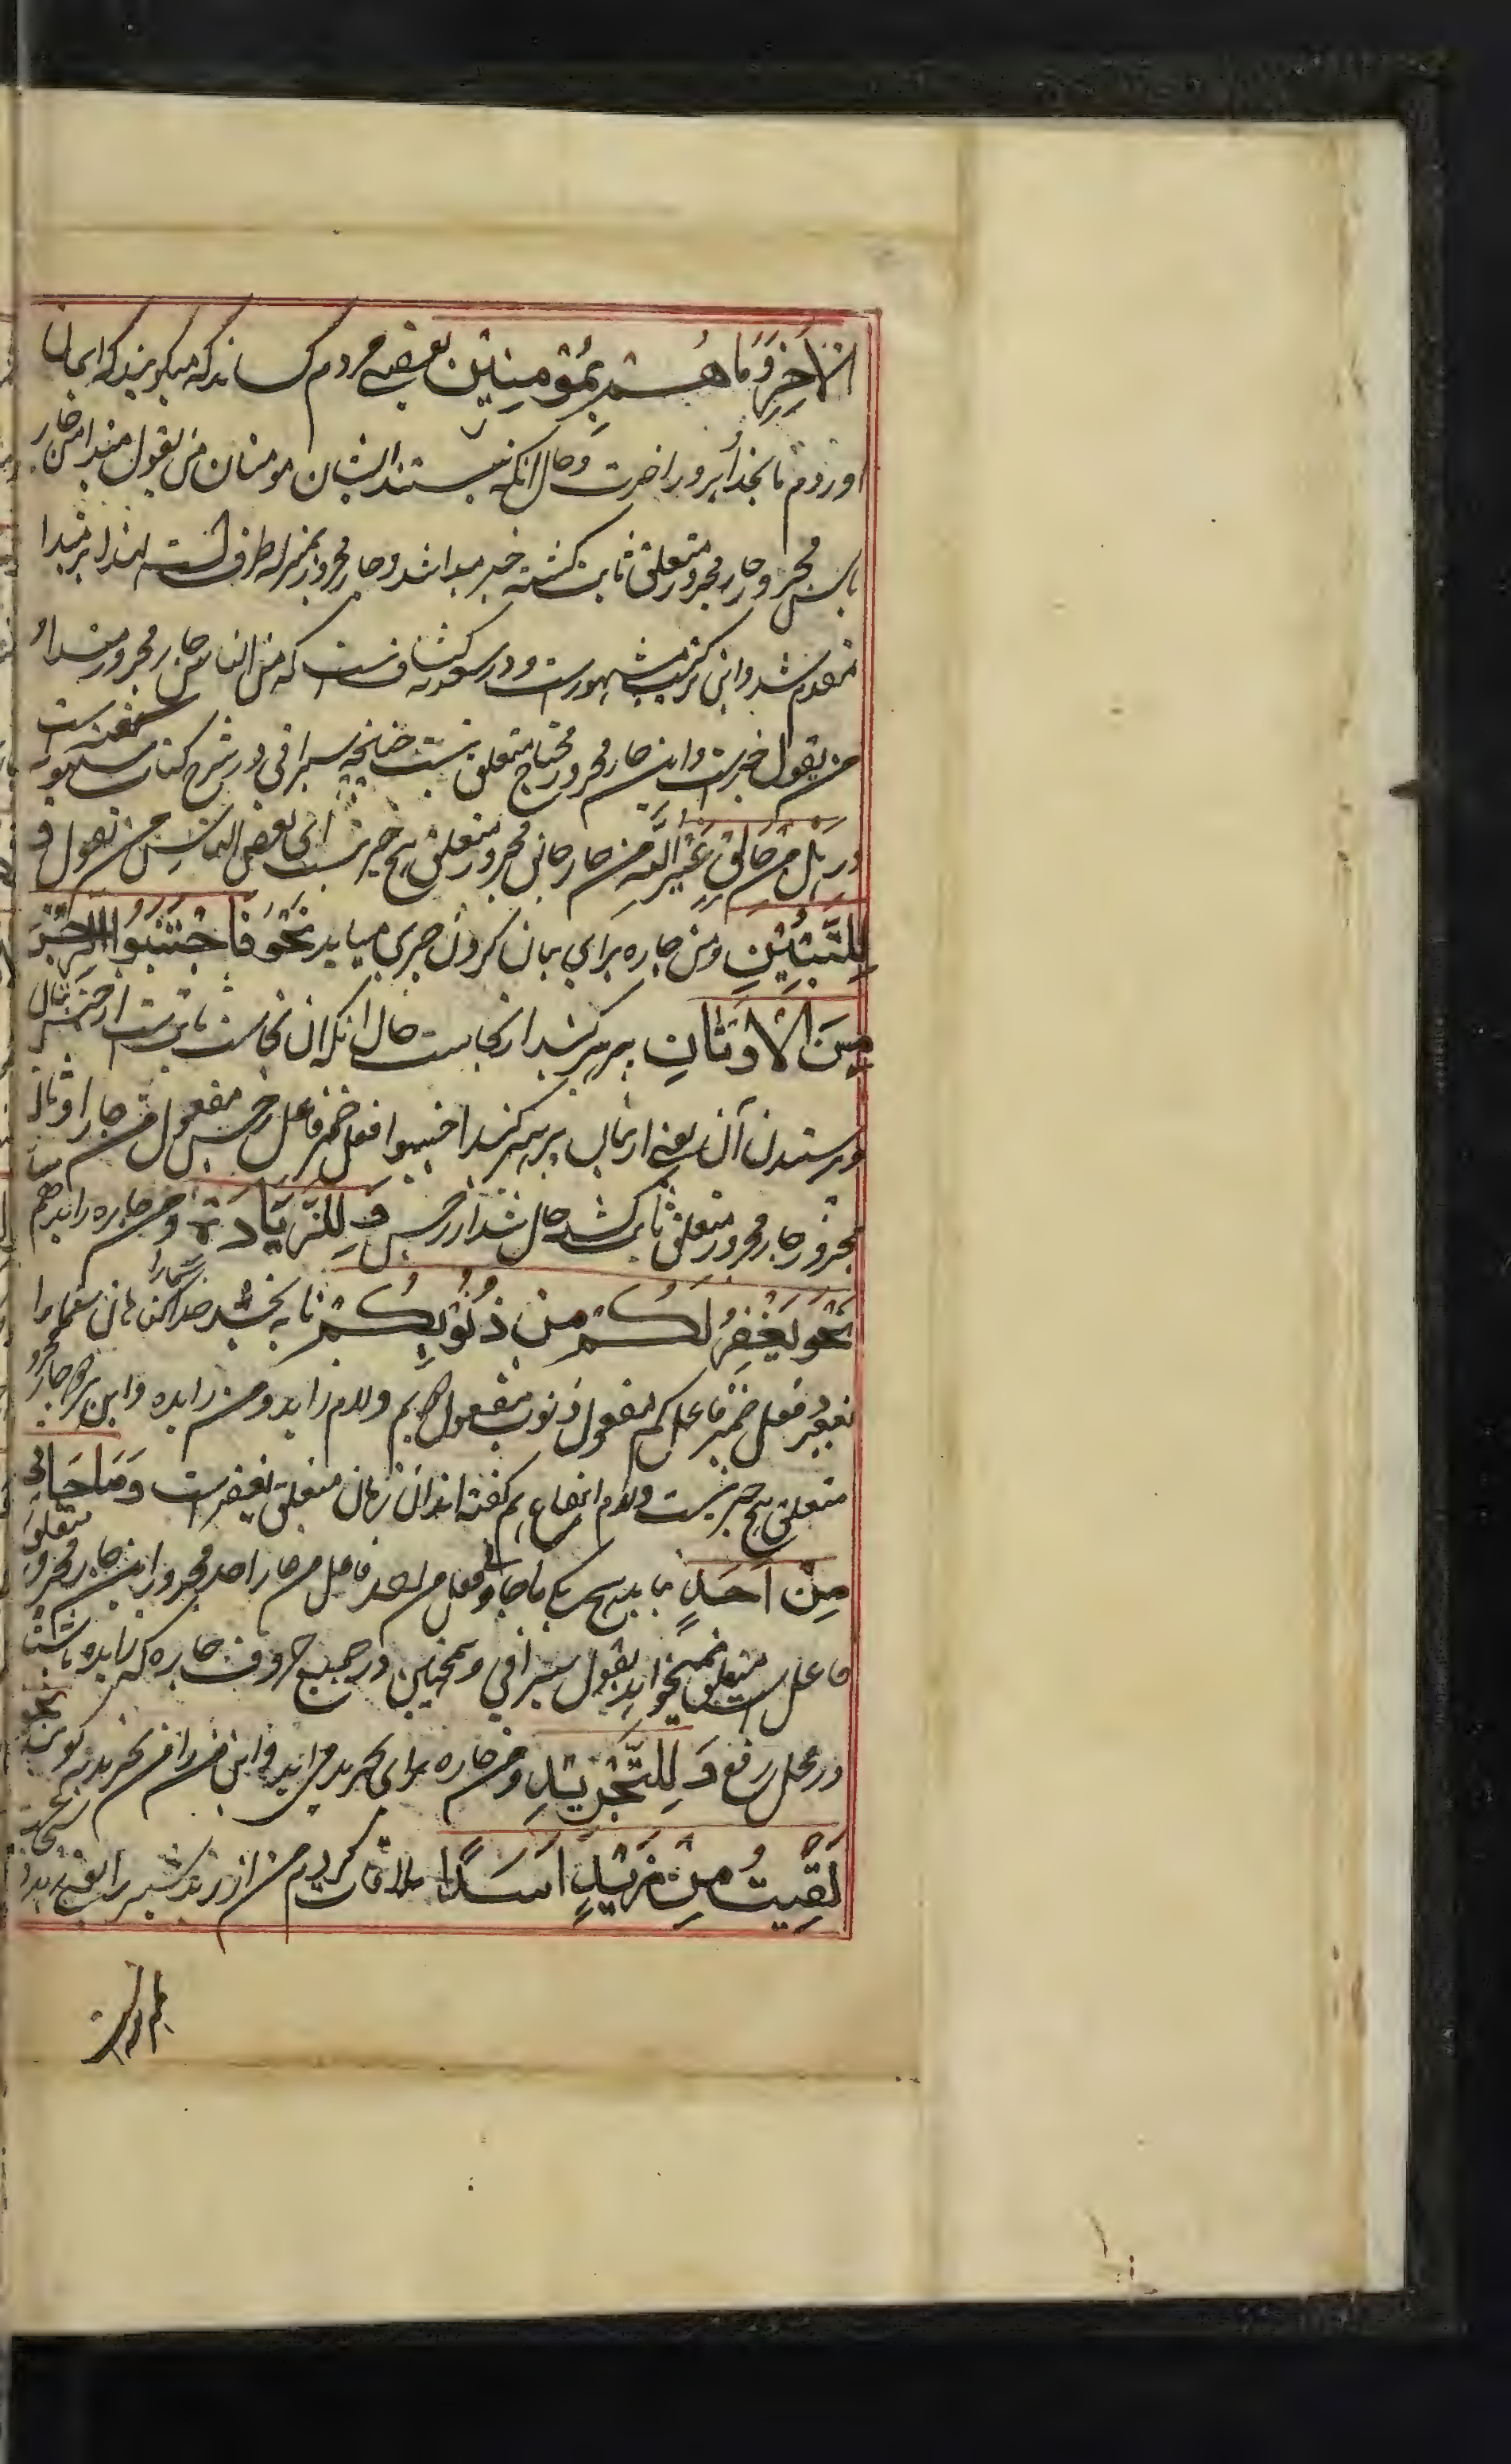 الْآخِرِ وَمَا هُمْ بِمُؤْمِنِيْنَ بعضے مردم کسانند که میگویند که ایمان
اوردیم ما بخدا و بروز اخرت و حال انکه نیستند ایشان مومنان من یقول مبتدا من جار
ناس مجرور جار مجرور متعلق ثابت گشته خبر مبتدا شد و جار مجرور بمنزله ظرف است لهذا بر مبتدا
مقدم شد و این ترکیب مشهورست و در کشافست که من الناس جار مجرور مبتدا و
من یقول خبرست و این جار مجرور محتاج متعلق نیست چنانچه سیرافی در شرح کتاب سیبویه گفته است
در هَلْ مِنْ خَالِقٍ غَيْرُ اللّٰهِ من جار خالق مجرور متعلق هیچ چیز نیست ای بعض الناس من یقول و
لِلتَّبْيِيْنِ و من جاره برای بیان کردن چیزی میاید نَحْوُ فَاجْتَنِبُوا الرِّجْسَ
مِنَ الْأَوْثَانِ پرهیز کنید از نجاست حال انکه ان نجاست ثابت است از جنس بتان
پرستیدن آن یعنے از بتان پرهیز کنید اجتنبوا فعل ضمیر فاعل رجس مفعول من جار اوثان
مجرور جار مجرور متعلق ثابت گشته حال شد از رجس وَ لِلزِّيَادَةِ و من جاره زاید هم میاید
نَحْوُ يَغْفِرْ لَكُمْ مِنْ ذُنُوْبِكُمْ تا به بخشد خدا گناهان شما را
یغفر فعل ضمیر فاعل کم مفعول ذنوب مفعول دوم و لام زاید و من زایده و این هر دو جار مجرور
متعلق هیچ چیز نیست و لام انتفاع هم گفته اند ان زمان متعلق یغفرست وَمَا جَاءَنِيْ
مِنْ اَحَدٍ نیامد هیچ یکے ما جاء فعل من احد فاعل من جار احد مجرور این جار مجرور
فاعل است متعلق نمیخواهد بقول سیرافی و همچنین در جمیع حروف جاره که زایده باشند
در محل رفع وَ لِلتَّجْرِيْدِ و من جاره برای تجرید می اید و این من را من تجریدیه گویند نحو
لَقِيْتُ مِنْ زَيْدٍ اَسَدًا ملاقات کردم من از زید شیر را یعنے زید در